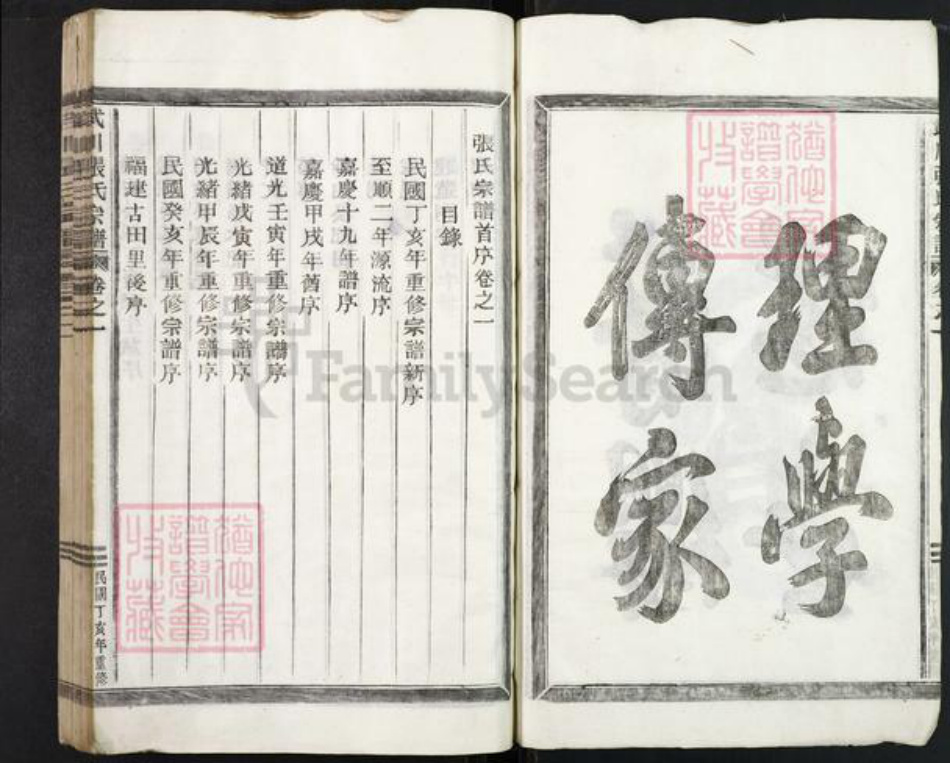 理學
傳家
猶他家
譜學會
收藏
張氏宗譜首序卷之一
目錄
民國丁亥年重修宗譜新序
至順二年源流序
嘉慶十九年譜序
嘉慶甲戌年舊序
道光壬寅年重修宗譜序
光緒戊寅年重修宗譜序
光緒甲辰年重修宗譜序
民國癸亥年重修宗譜序
福建古田里後序
張氏宗譜
卷之一
民國丁亥年重修
猶他家
譜學會
收藏
FamilySearch